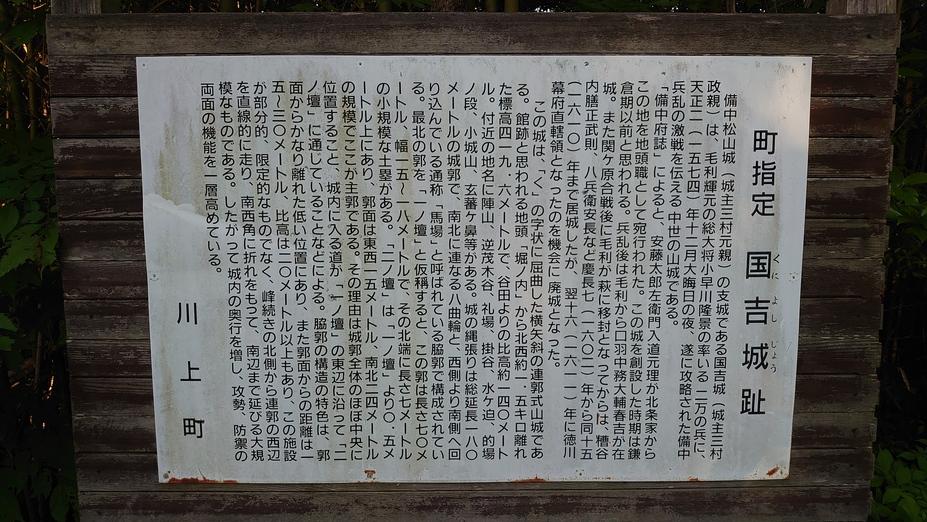 町指定 国吉城趾
くに よし じょう
備中松山城（城主三村元親）の支城である国吉城（城主三村
政親）は、毛利輝元の総大将小早川隆景の率いる二万の兵に、
天正二（一五七四）年十二月大晦日の夜、遂に攻略された備中
兵乱の激戦を伝える中世の山城である。
「備中府誌」によると、安藤太郎左衛門入道元理が北条家から
この地を地頭職として宛行われた。この城を創設した時期は鎌
倉期以前と思われる。兵乱後は毛利から口羽中務大輔春吉が在
城。また関ケ原合戦後に毛利が萩に移封となってからは、糟谷
内膳正武則、八兵衛安長など慶長七（一六〇二）年から同十五
（一六一〇）年まで居城したが、翌十六（一六一一）年に徳川
幕府直轄領となったのを機会に廃城となった。
この城は、「く」の字状に屈曲した横矢斜の連郭式山城であ
る。館跡と思われる地頭「堀ノ内」から北西約一．五キロ離れ
た標高四一九．六メートルで、谷田よりの比高約一四〇メート
ル。付近の地名に陣山、逆茂木谷、礼場、掛谷、水ケ迫、的場
ノ段、小城山、玄蕃ヶ鼻等がある。城の縄張りは総延長一八〇
メートルの城郭で、南北に連なる八曲輪と、西側より南側へ回
り込んでいる通称「馬場」と呼ばれている脇郭で構成されてい
る。最北の郭を「一ノ壇」と仮称すると、この郭は長さ七〇メ
ートル、幅一五～一八メートルで、その北端に長さ七メートル
の小規模な土塁がある。「二ノ壇」は「一ノ壇」より〇．五メ
ートル上にあり、郭面は東西一五メートル、南北二四メートル
の規模でここが主郭である。その理由は城郭全体のほぼ中央に
位置すること、城内に入る道が「一ノ壇」の東辺に沿って「二
ノ壇」に通じていることなどによる。脇郭の構造の特色は、郭
面からかなり離れた低い位置にあり、また郭面からの距離は一
五～三〇メートル、比高は二〇メートル以上もあり、この施設
が部分的、限定的なものでなく、峰続きの北側から連郭の西辺
を直線的に走り、南西角に折れをもって、南辺まで延びる大規
模なものである。したがって城内の奥行を増し、攻勢、防禦の
両面の機能を一層高めている。
川上町